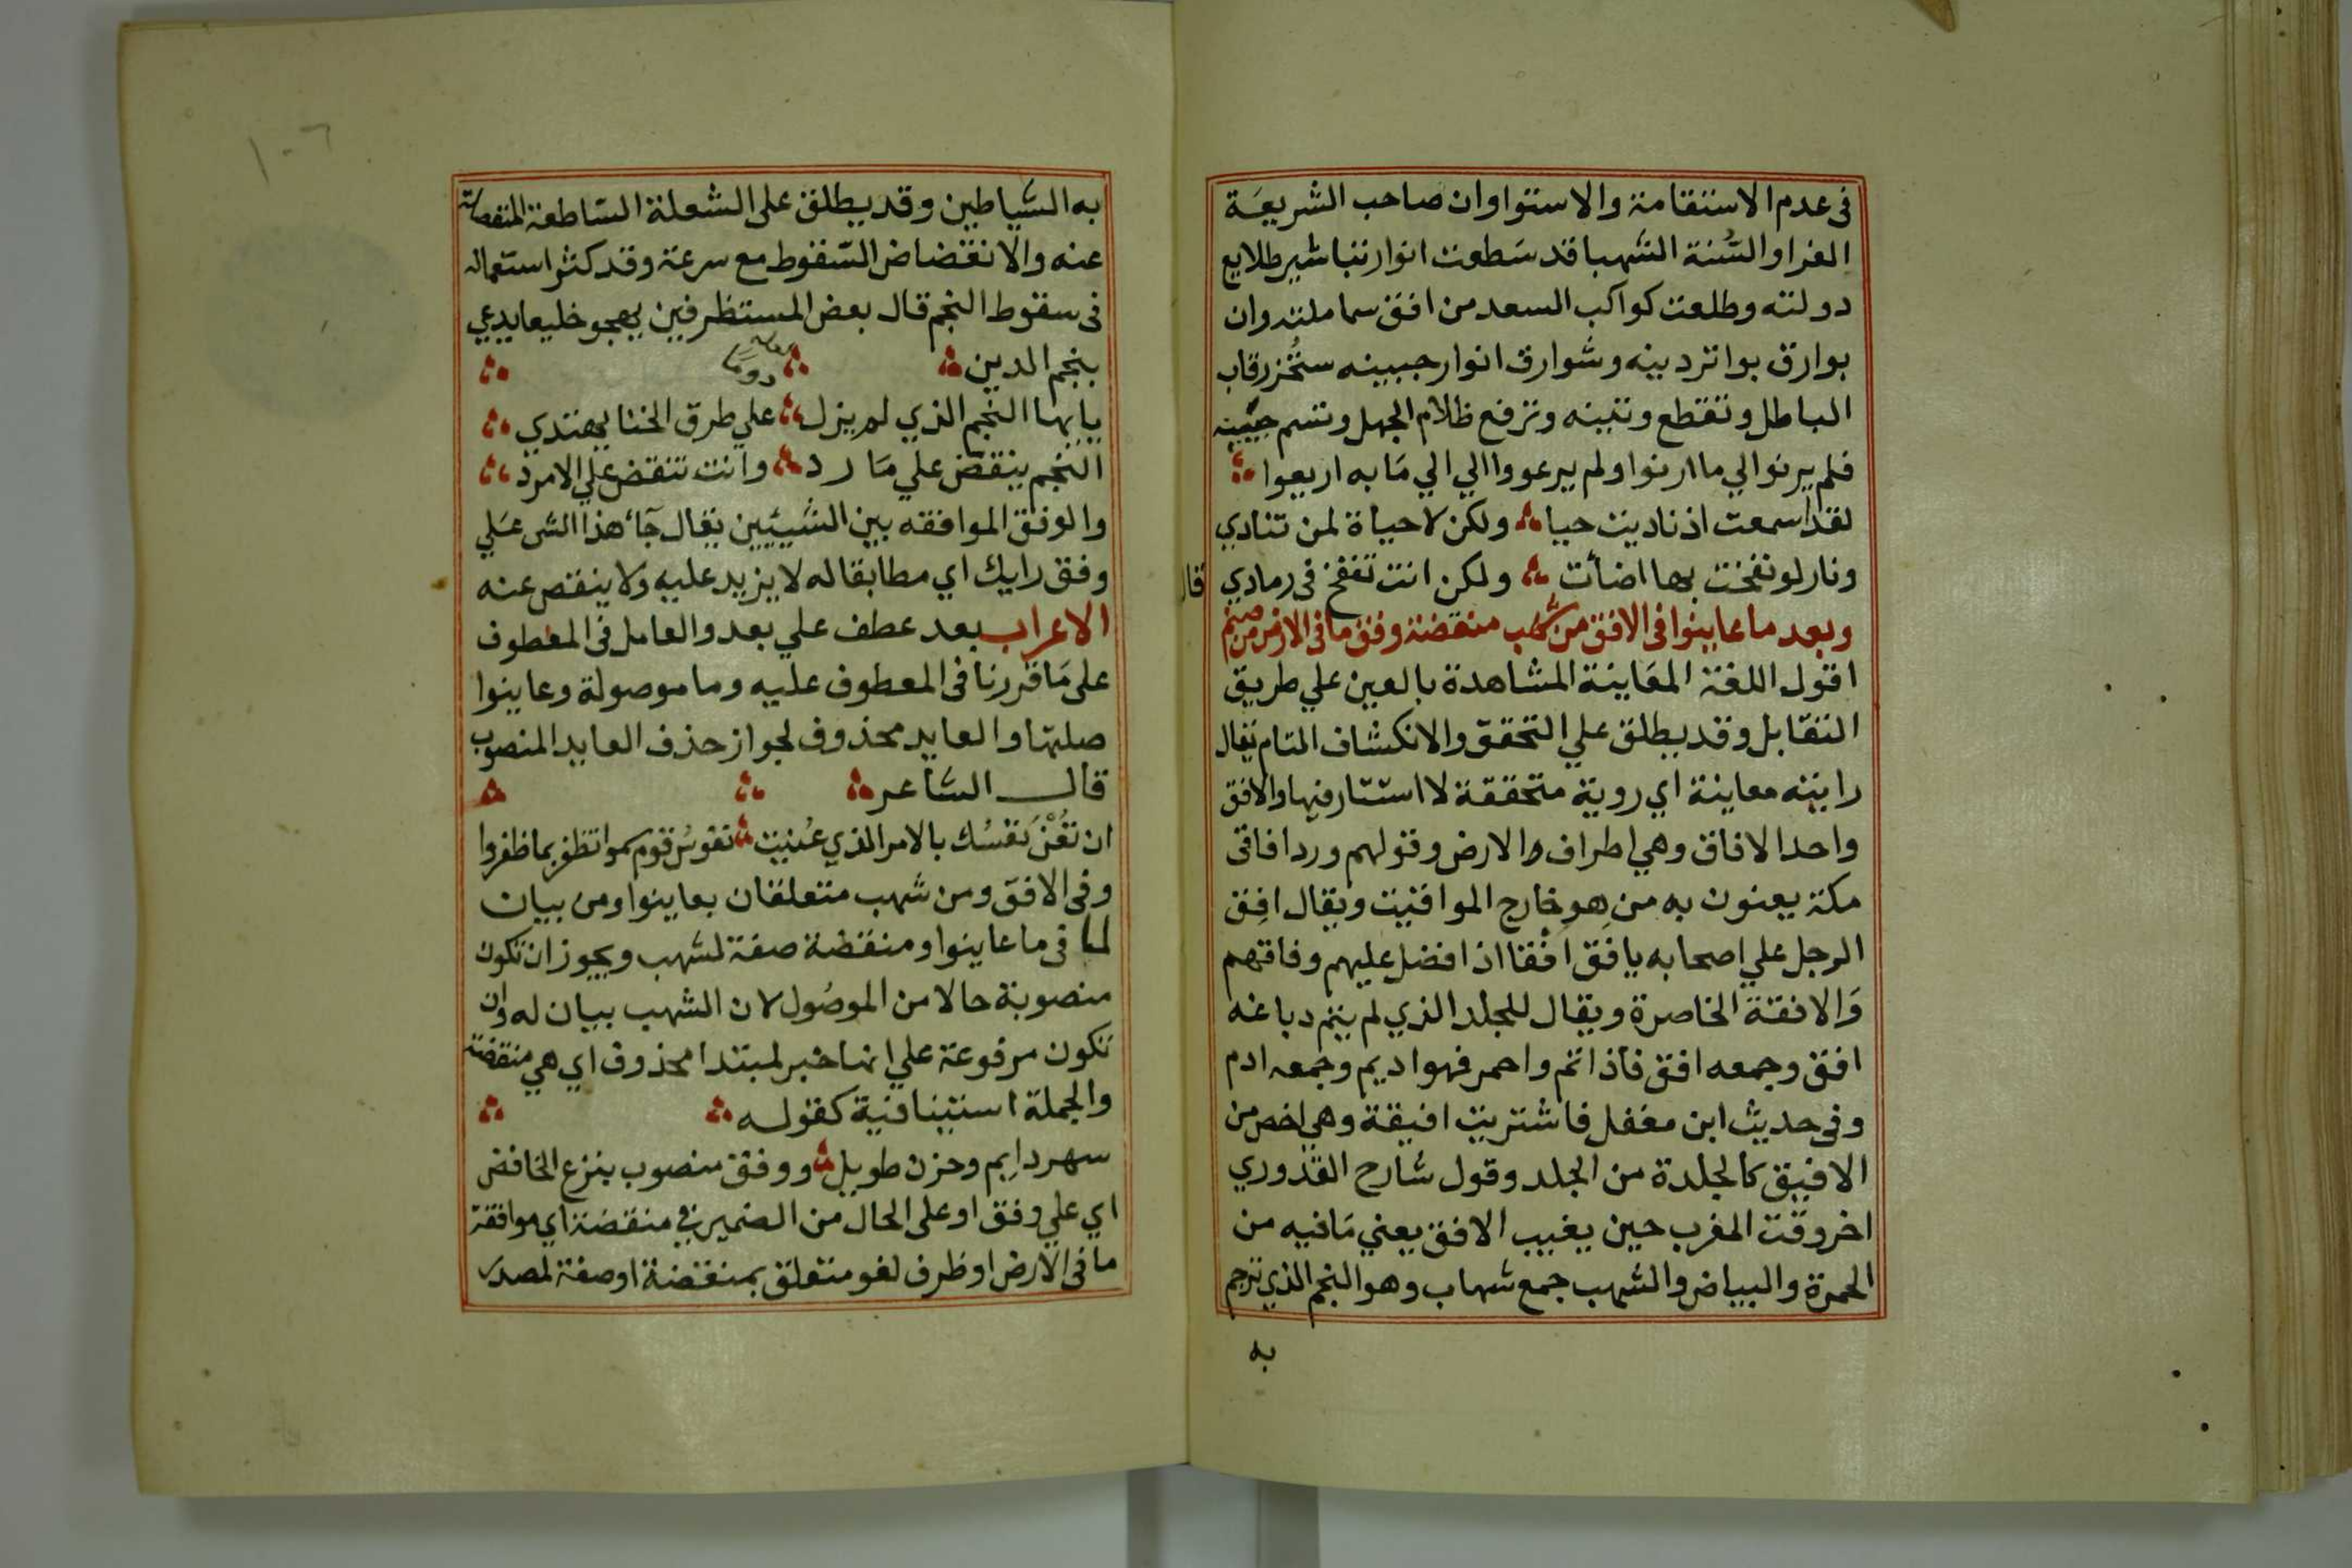 فى عدم الاستقامة والاستوا وان صاحب الشريعَة
الغرا والسُّنة الشهبا قد سَطعت انوار تباشير طلايع
دولته وطلعت كواكب السعد من افق سما ملته وان
بوارق بواتر دينه وشوارق انوار جبينه ستُحُز رقاب
الباطل وتقتطع وتينه وترفع ظلام الجهل وتسم جبينه
فلم يرنوا لي ما ارنوا ولم يرعووا الي الي مَا به اربعوا
لقد اسمعت اذ ناديت حيا ولكن لا حياة لمن تنادي
ونار لو نفخت بها اضأت ولكن انت تنفخ فى رمادي قال
وبعد ما عاينوا فى الافق من شهب منقضة وفق ما فى الارض من صنم
اقول اللغة المعَاينة المشاهدة بالعين علي طريق
التقابل وقد يطلق علي التحقق والانكشاف التام يقال
رايته معاينة اي روية متحققة لا استتار فيها والافق
واحد الافاق وهي اطراف والارض وقولهم ورد افاقى
مكة يعنون به من هو خارج المواقيت ويقال افِق
الرجل علي اصحابه يافِق افْقا اذا افضل عليهم وفاقهم
وَالافقة الخاصرة ويقال للجلد الذي لم يتم دباغه
افق وجمعه افق فاذا اتم واحمر فهو اديم وجمعه ادم
وفى حديث ابن مغفل فاشتريت افيقة وهي اخص من
الافيق كالجلدة من الجلد وقول شارح القدوري
اخر وقت المغرب حين يغيب الافق يعني مَا فيه من
الحمرة والبياض والشهب جمع شهاب وهو النجم الذي ترجم
به
به الشياطين وقد يطلق على الشعلة السّاطعة المنفصلة
عنه والانقضاض السّقوط مع سرعة وقد كثر استعماله
فى سقوط النجم قال بعض المستظرفين يهجو خليعا يدعي
بنجم الدين
يا ايها النجم الذي لم يزل علي طرق الخنا يهتدي
النجم ينقض علي مَارد وانت تنقض علي الامرد
والوفق الموافقه بين الشيئين يقال جآء هذا الشى عَلي
وفق رايك اي مطابقا له لا يزيد عليه ولا ينقص عنه
الاعراب بعد عطف علي بعد والعامل فى المعطوف
على مَا قررنا فى المعطوف عليه وما موصولة وعاينوا
صلتها والعايد محذوف لجواز حذف العايد المنصوب
قال الشاعر
ان تُعْنَ نفسُك بالامر الذي عُنيت نفوسُ قوم سموا تظفر بما ظفروا
وفى الافق ومن شهب متعلقان بعاينوا ومن بيان
لما فى ما عاينوا ومنقضة صفة لشهب ويجوز ان تكون
منصوبة حالا من الموصُول لان الشهب بيان له وان
تكون مرفوعة علي انها خبر لمبتدا محذوف اي هي منقضة
والجملة استينافية كقوله
سهر دايم وحزن طويل ووفق منصوب بنزع الخافض
اي علي وفق او على الحال من الضمير في منقضة اي موافقة
ما فى الارض او ظرف لغو متعلق بمنقضة او صفة لمصدر